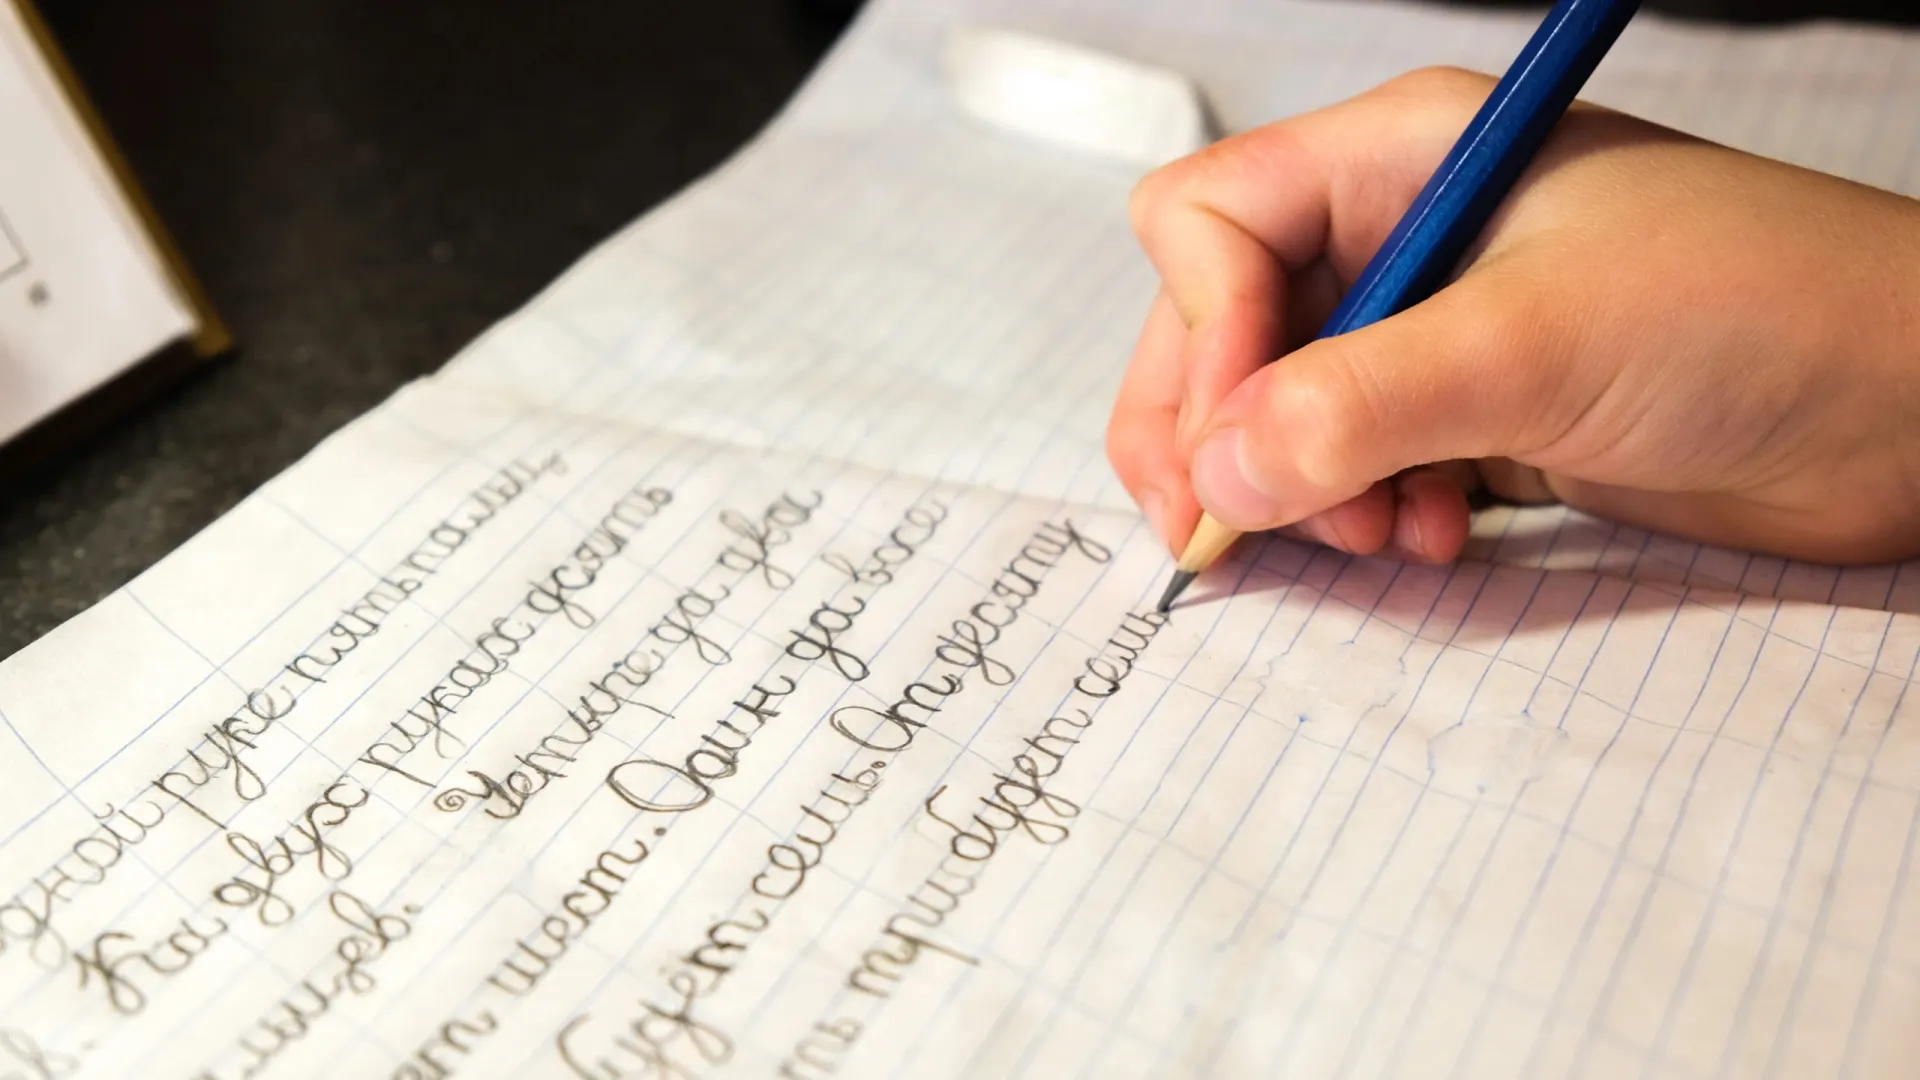 одной руке пять пальц
ев. На двух руках десять
альцев. Четыре да два
ет шест. Один да восе
будет семь. От десяти
ть три будет семь